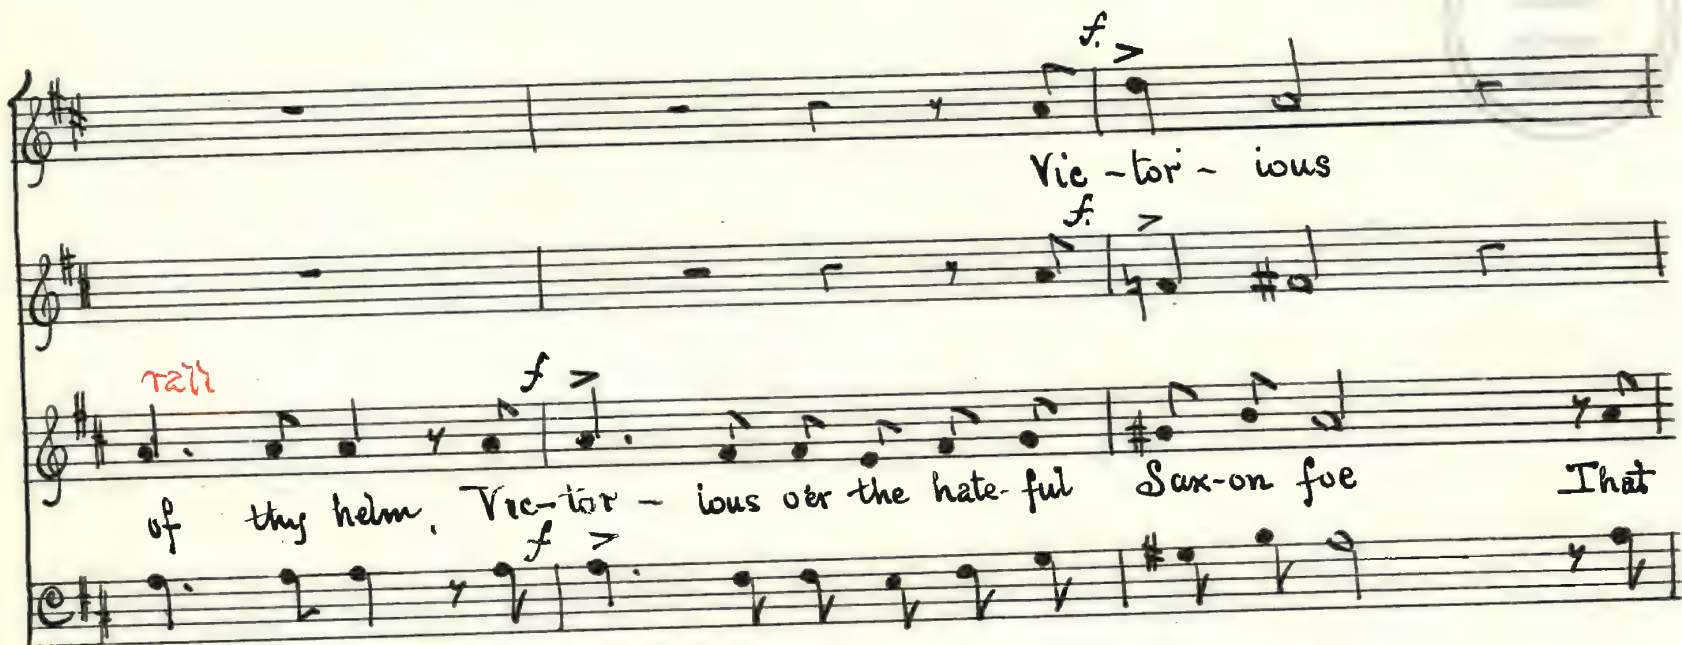 f. >
Vic - tor - ious
f. >
rall f >
of thy helm, Vic-tor - ious o'er the hate-ful Sax-on foe That
f >